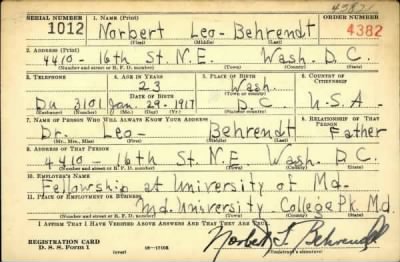 43821
SERIAL NUMBER 1. NAME (Print) ORDER NUMBER
1012 Norbert Leo Behrendt 4382
(First) (Middle) (Last)
2. ADDRESS (Print)
4410 - 16th St. N.E. Wash. D.C.
(Number and street or R. F. D. number) (Town) (County) (State)
3. TELEPHONE 4. AGE IN YEARS 5. PLACE OF BIRTH 6. COUNTRY OF CITIZENSHIP
23 Wash.
DATE OF BIRTH (Town or county)
Du 3101 Jan. 29 - 1917 D.C. U.S.A.
(Exchange) (Number) (Mo.) (Day) (Yr.) (State or country)
7. NAME OF PERSON WHO WILL ALWAYS KNOW YOUR ADDRESS 8. RELATIONSHIP OF THAT PERSON
Dr. Leo - Behrendt Father
(Mr., Mrs., Miss) (First) (Middle) (Last)
9. ADDRESS OF THAT PERSON
4410 - 16th St. N.E. Wash. D.C.
(Number and street or R. F. D. number) (Town) (County) (State)
10. EMPLOYER'S NAME
Fellowship at University of Md.
11. PLACE OF EMPLOYMENT OR BUSINESS
Md. University College Pk. Md.
(Number and street or R. F. D. number) (Town) (County) (State)
I AFFIRM THAT I HAVE VERIFIED ABOVE ANSWERS AND THAT THEY ARE TRUE.
REGISTRATION CARD
D. S. S. Form 1 (over) 16-17105 Norbert L. Behrendt